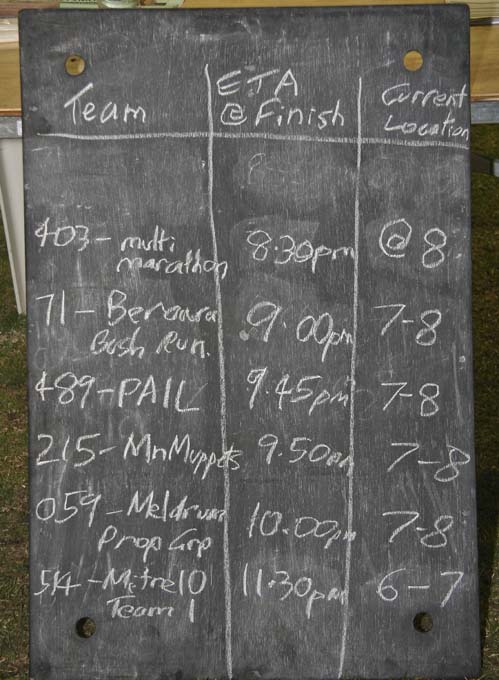 Team ETA @ Finish Current Location
403 - multi marathon 8.30pm @ 8
71 - Berowra Bush Run. 9.00pm 7-8
489 - PAIL 9.45pm 7-8
215 - MnMuppets 9.50pm 7-8
059 - Meldrum Prop Grp 10.00pm 7-8
514 - Mitre10 Team 1 11.30pm 6-7